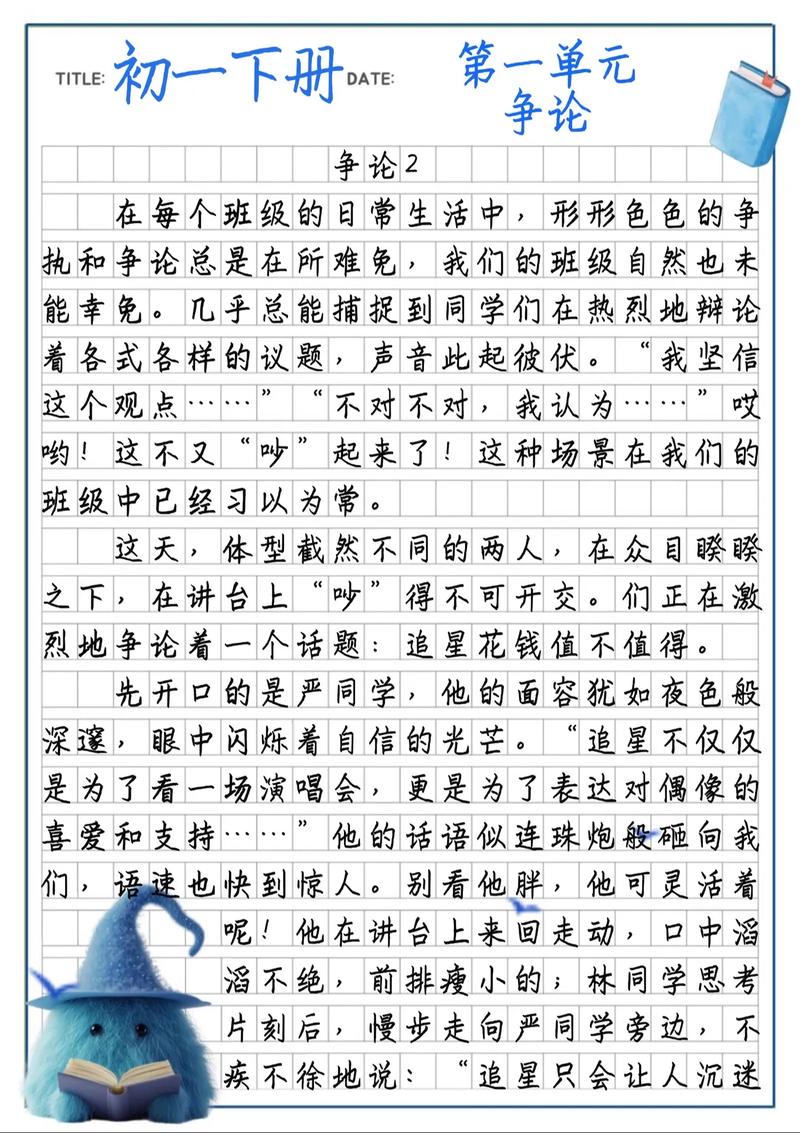 TITLE: 初一下册 DATE: 第一单元
争论
争论2
在每个班级的日常生活中，形形色色的争
执和争论总是在所难免，我们的班级自然也未
能幸免。几乎总能捕捉到同学们在热烈地辩论
着各式各样的议题，声音此起彼伏。“我坚信
这个观点……”“不对不对，我认为……”哎
哟！这不又“吵”起来了！这种场景在我们的
班级中已经习以为常。
这天，体型截然不同的两人，在众目睽睽
之下，在讲台上“吵”得不可开交。们正在激
烈地争论着一个话题：追星花钱值不值得。
先开口的是严同学，他的面容犹如夜色般
深邃，眼中闪烁着自信的光芒。“追星不仅仅
是为了看一场演唱会，更是为了表达对偶像的
喜爱和支持……”他的话语似连珠炮般砸向我
们，语速也快到惊人。别看他胖，他可灵活着
呢！他在讲台上来回走动，口中滔
滔不绝，前排瘦小的；林同学思考
片刻后，慢步走向严同学旁边，不
疾不徐地说：“追星只会让人沉迷